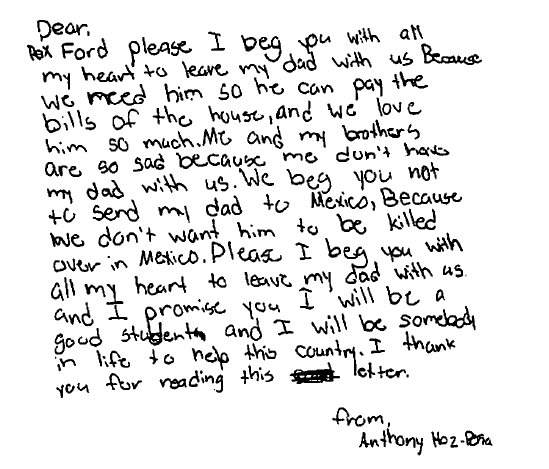 Dear,
Rex Ford please I beg you with all
my heart to leave my dad with us Because
we need him so he can pay the
bills of the house, and we love
him so much. Me and my brothers
are so sad because me don't have
my dad with us. We beg you not
to send my dad to Mexico, Because
we don't want him to be killed
over in Mexico. Please I beg you with
all my heart to leave my dad with us.
and I promise you I will be a
good student and I will be somebody
in life to help this country. I thank
you for reading this letter.
from,
Anthony